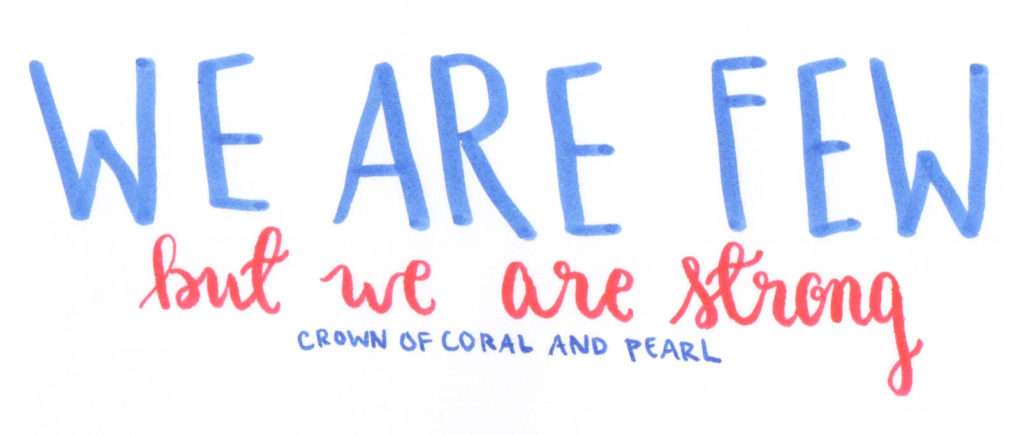 WE ARE FEW
but we are strong
CROWN OF CORAL AND PEARL